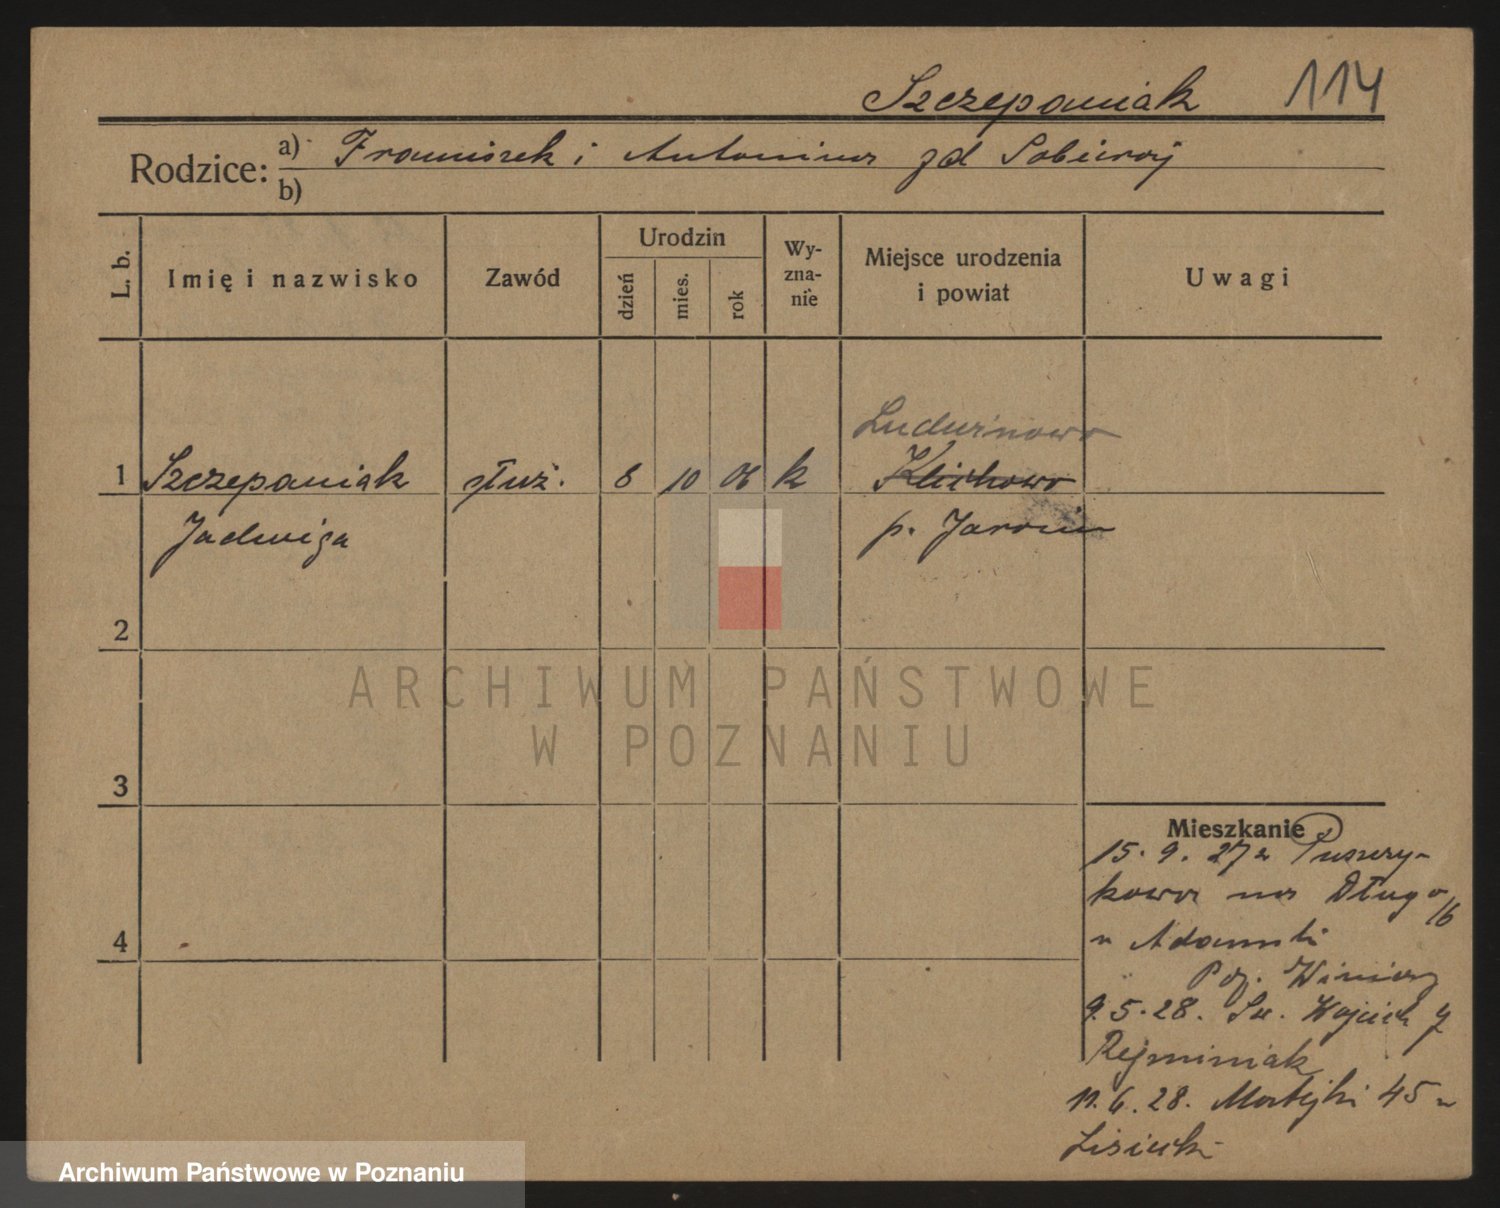 Szczepaniak 114
Rodzice: a) Franciszek i Antonina zd Sobieraj
b)
L. b. Imię i nazwisko Zawód Urodzin dzień mies. rok Wy-zna-nie Miejsce urodzenia i powiat Uwagi
Ludwinowo
1 Szczepaniak służ. 8 10 06 k Klichowo
Jadwiga p. Jarocin
2
ARCHIWUM PAŃSTWOWE
W POZNANIU
3
Mieszkanie
15. 9. 27 z Puszczy-
kowa na Długa 16
u Adamski
9.5.28. Św. Wojciech 7
Rejminiak
11.6.28. Matejki 45 u
4
Archiwum Państwowe w Poznaniu